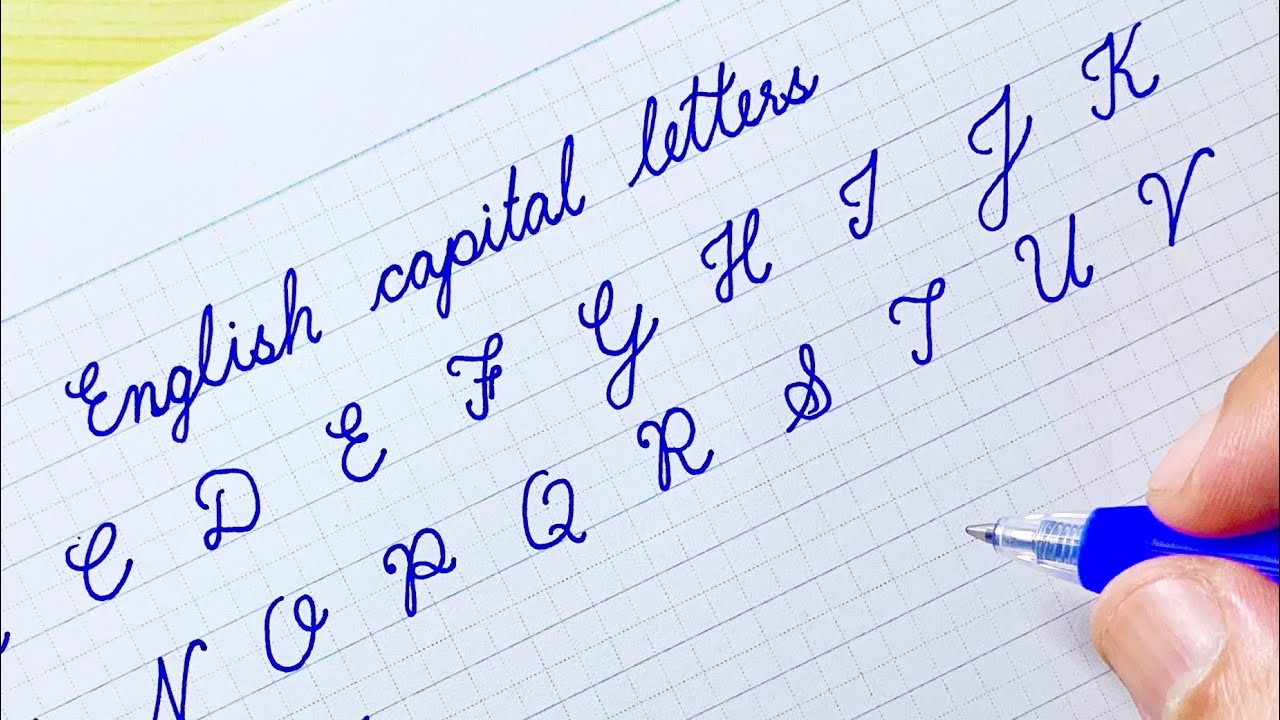 English capital letters
C D E F G H I J K
N O P Q R S T U V